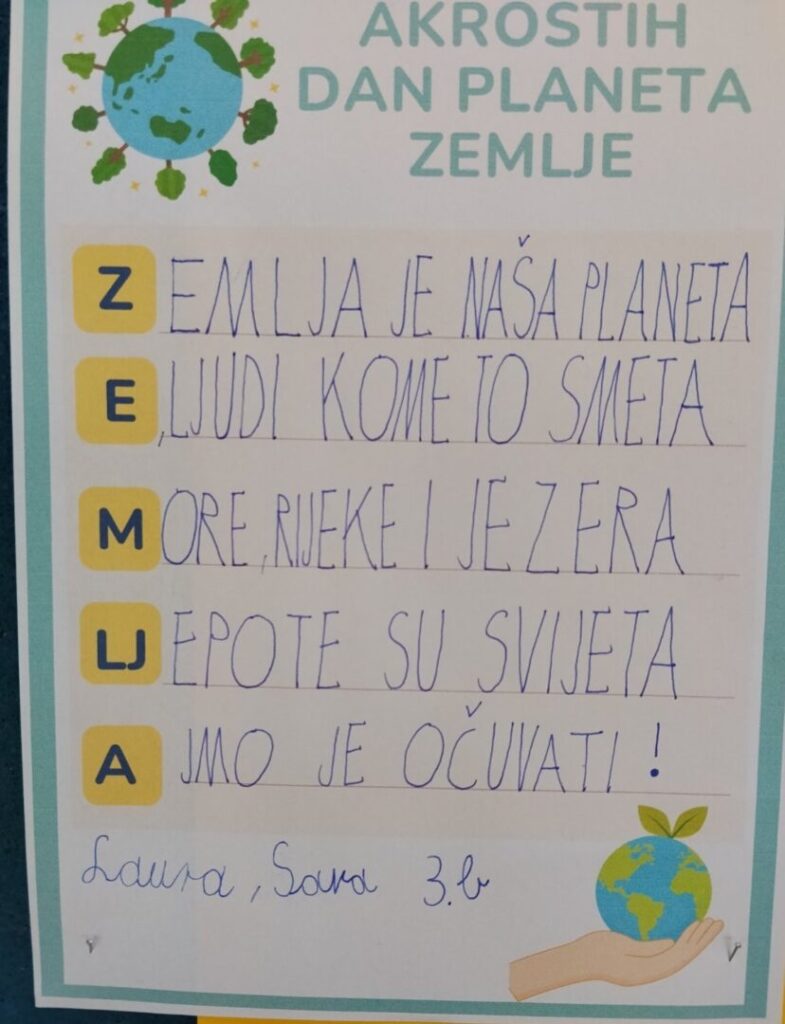 AKROSTIH
DAN PLANETA
ZEMLJE
ZEMLJA JE NAŠA PLANETA
E,LJUDI KOME TO SMETA
MORE,RIJEKE I JEZERA
LJEPOTE SU SVIJETA
AJMO JE OČUVATI!
Laura, Sara 3.b